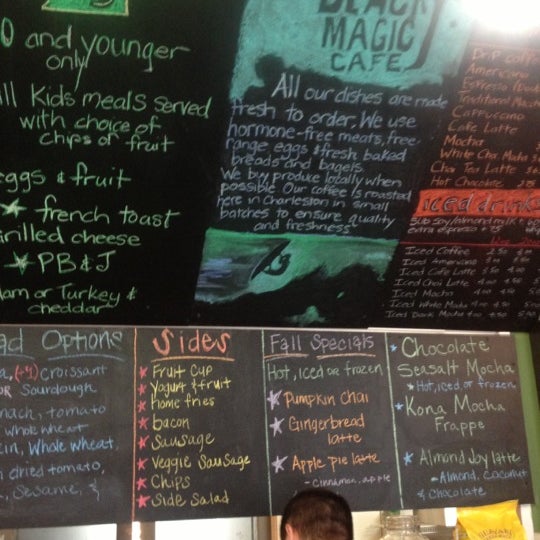 0 and younger
only
ll Kids meals served
with choice of
chips or fruit
eggs & fruit
french toast
rilled cheese
PB&J
Ham or Turkey &
cheddar
BLACK
MAGIC
CAFE
All our dishes are made
fresh to order. We use
hormone-free meats, free
range eggs & fresh baked
breads and bagels.
We buy produce locally when
possible. Our coffee is roasted
here in Charleston in small
batches to ensure quality
and freshness
Drip coff
Americano
Espresso
Traditional Mac
Cappuccino
Cafe Latte
Mocha
White Choc Mocha
Chai Tea Latte
Hot Chocolate
iced drink
extra espresso
Iced Coffee
Iced Americano
Iced Cafe Latte
Iced Chai Latte
Iced Mocha
Iced White Mocha
Iced Dark Mocha
ad Options
(+1) Croissant
OR Sourdough
nach, tomato
whole wheat
in, Whole Wheat,
n dried tomato,
, Sesame, &
Sides
Fruit Cup
Yogurt & fruit
home fries
bacon
Sausage
Veggie Sausage
Chips
Side Salad
Fall Specials
Hot, iced or frozen
Pumpkin Chai
Gingerbread
latte
Apple pie latte
- cinnamon, apple
Chocolate
Seasalt Mocha
Hot, iced or frozen
Kona Mocha
Frappe
Almond Joy latte
- Almond, coconut
& chocolate